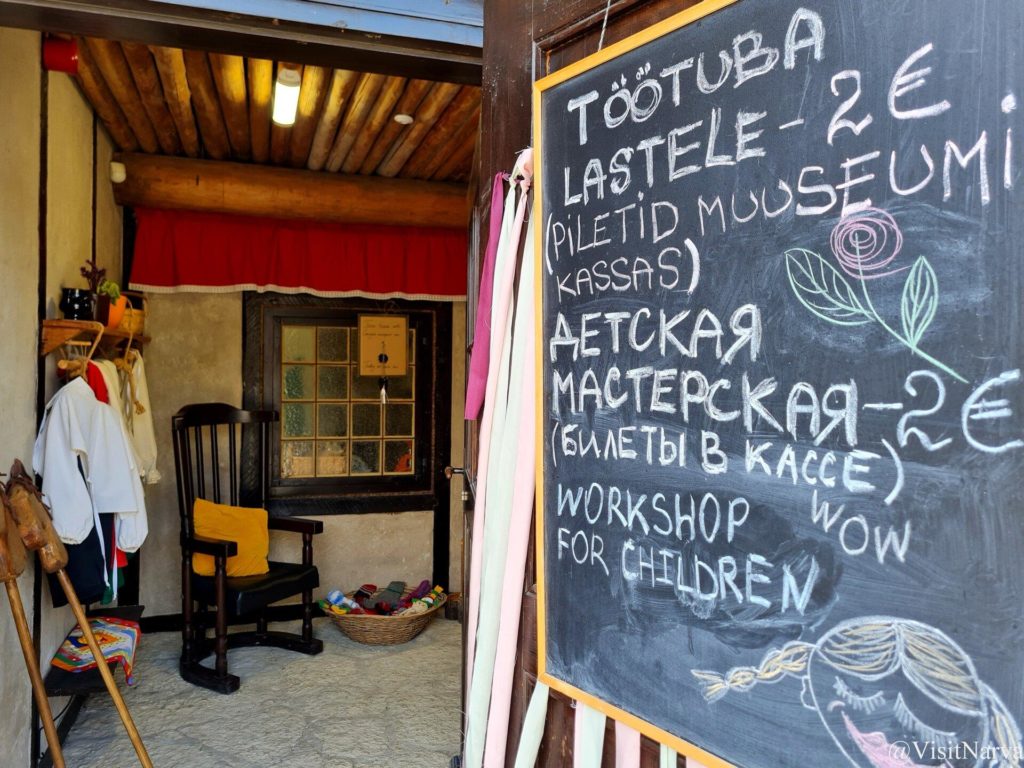 TÖÖTUBA
LASTELE - 2€
(PILETID MUUSEUMi
KASSAS)
ДЕТСКАЯ
МАСТЕРСКАЯ - 2€
(БИЛЕТЫ В КАССЕ)
WORKSHOP
FOR CHILDREN
WOW
@VisitNarva